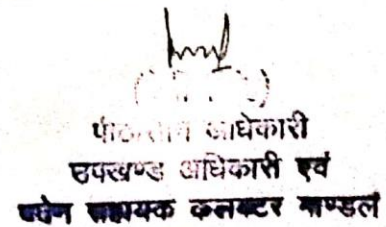 अधिकारी
उपखण्ड अधिकारी एवं
पदेन सहायक कलक्टर माण्डल